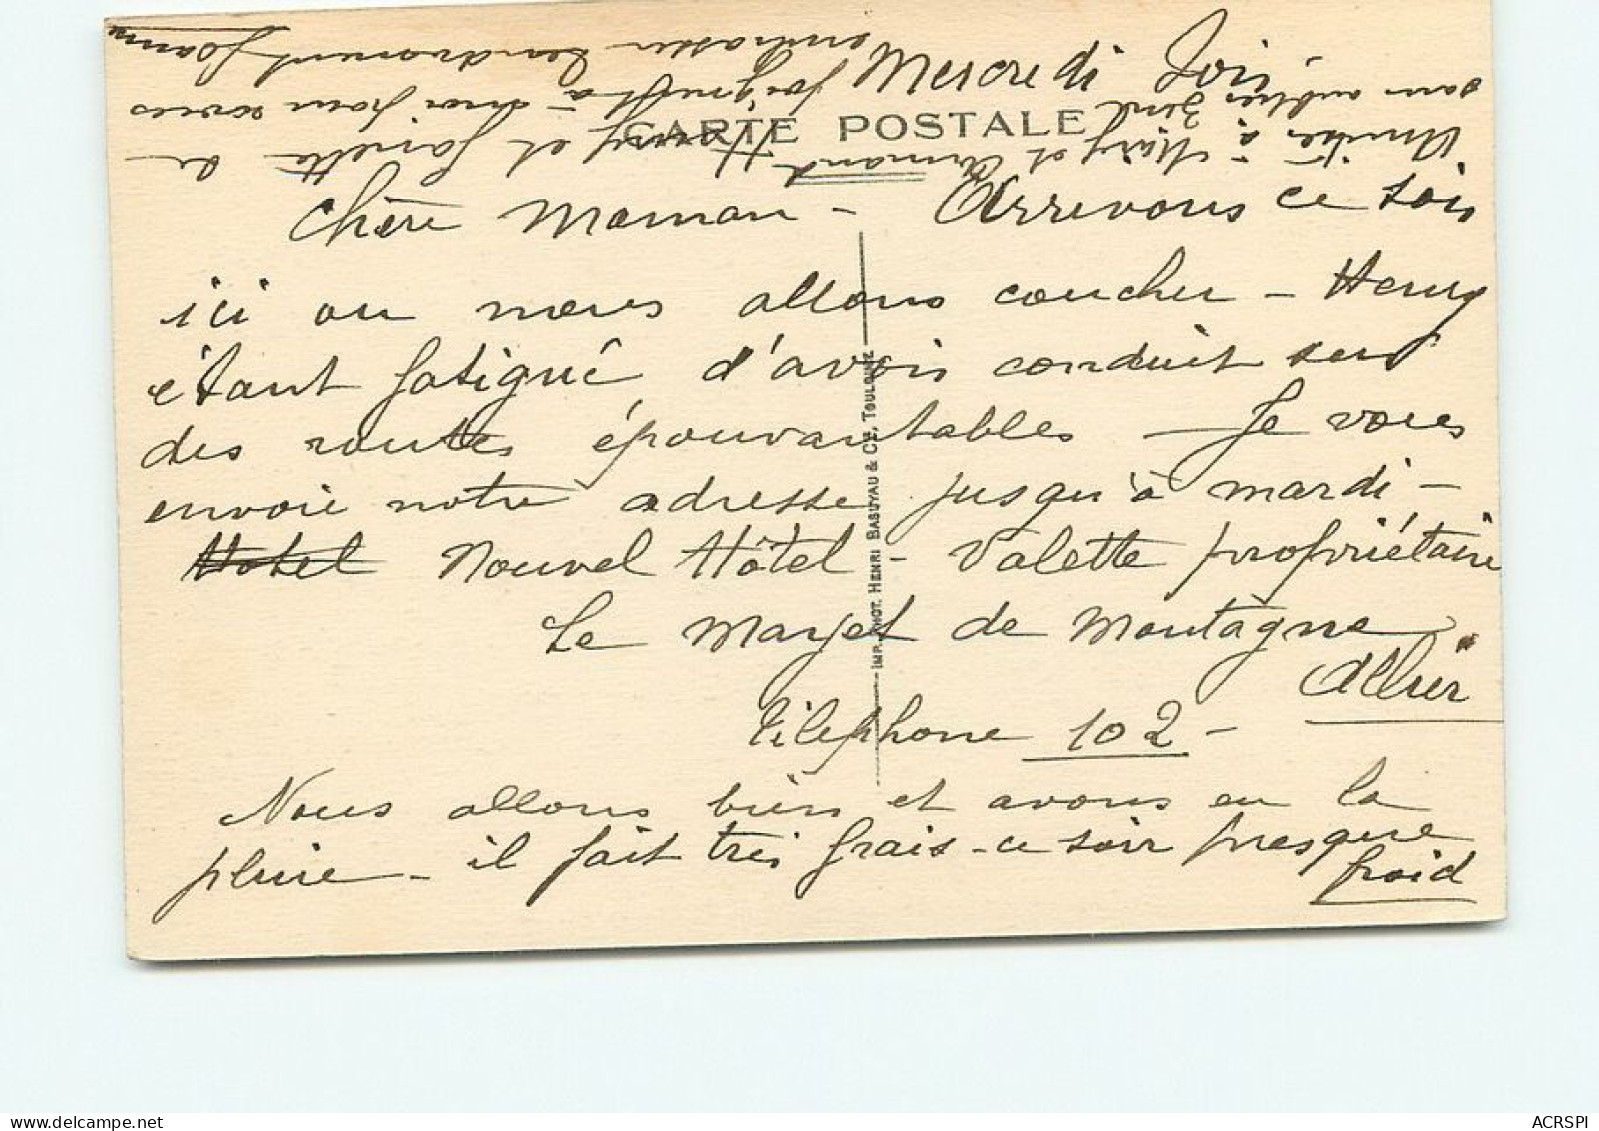 Mercredi Soir
CARTE POSTALE
Chère Maman - Arrivons ce soir
ici ou nous allons coucher - Henry
étant fatigué d'avoir conduit sur
des routes épouvantables - Je vous
envoie notre adresse jusqu'à mardi -
Hotel Nouvel Hôtel - Valette propriétaire
Le Mayet de Montagne
Allier
téléphone 102 -
Nous allons bien et avons eu la
pluie - il fait très frais - ce soir presque
froid
IMP. PHOT. HENRI BASUYAU & CIE, TOULOUSE
Amitiés à Mary et Armand
sans oublier
Henry et se joignent à moi pour vous
embrasser tendrement
ACRSPI